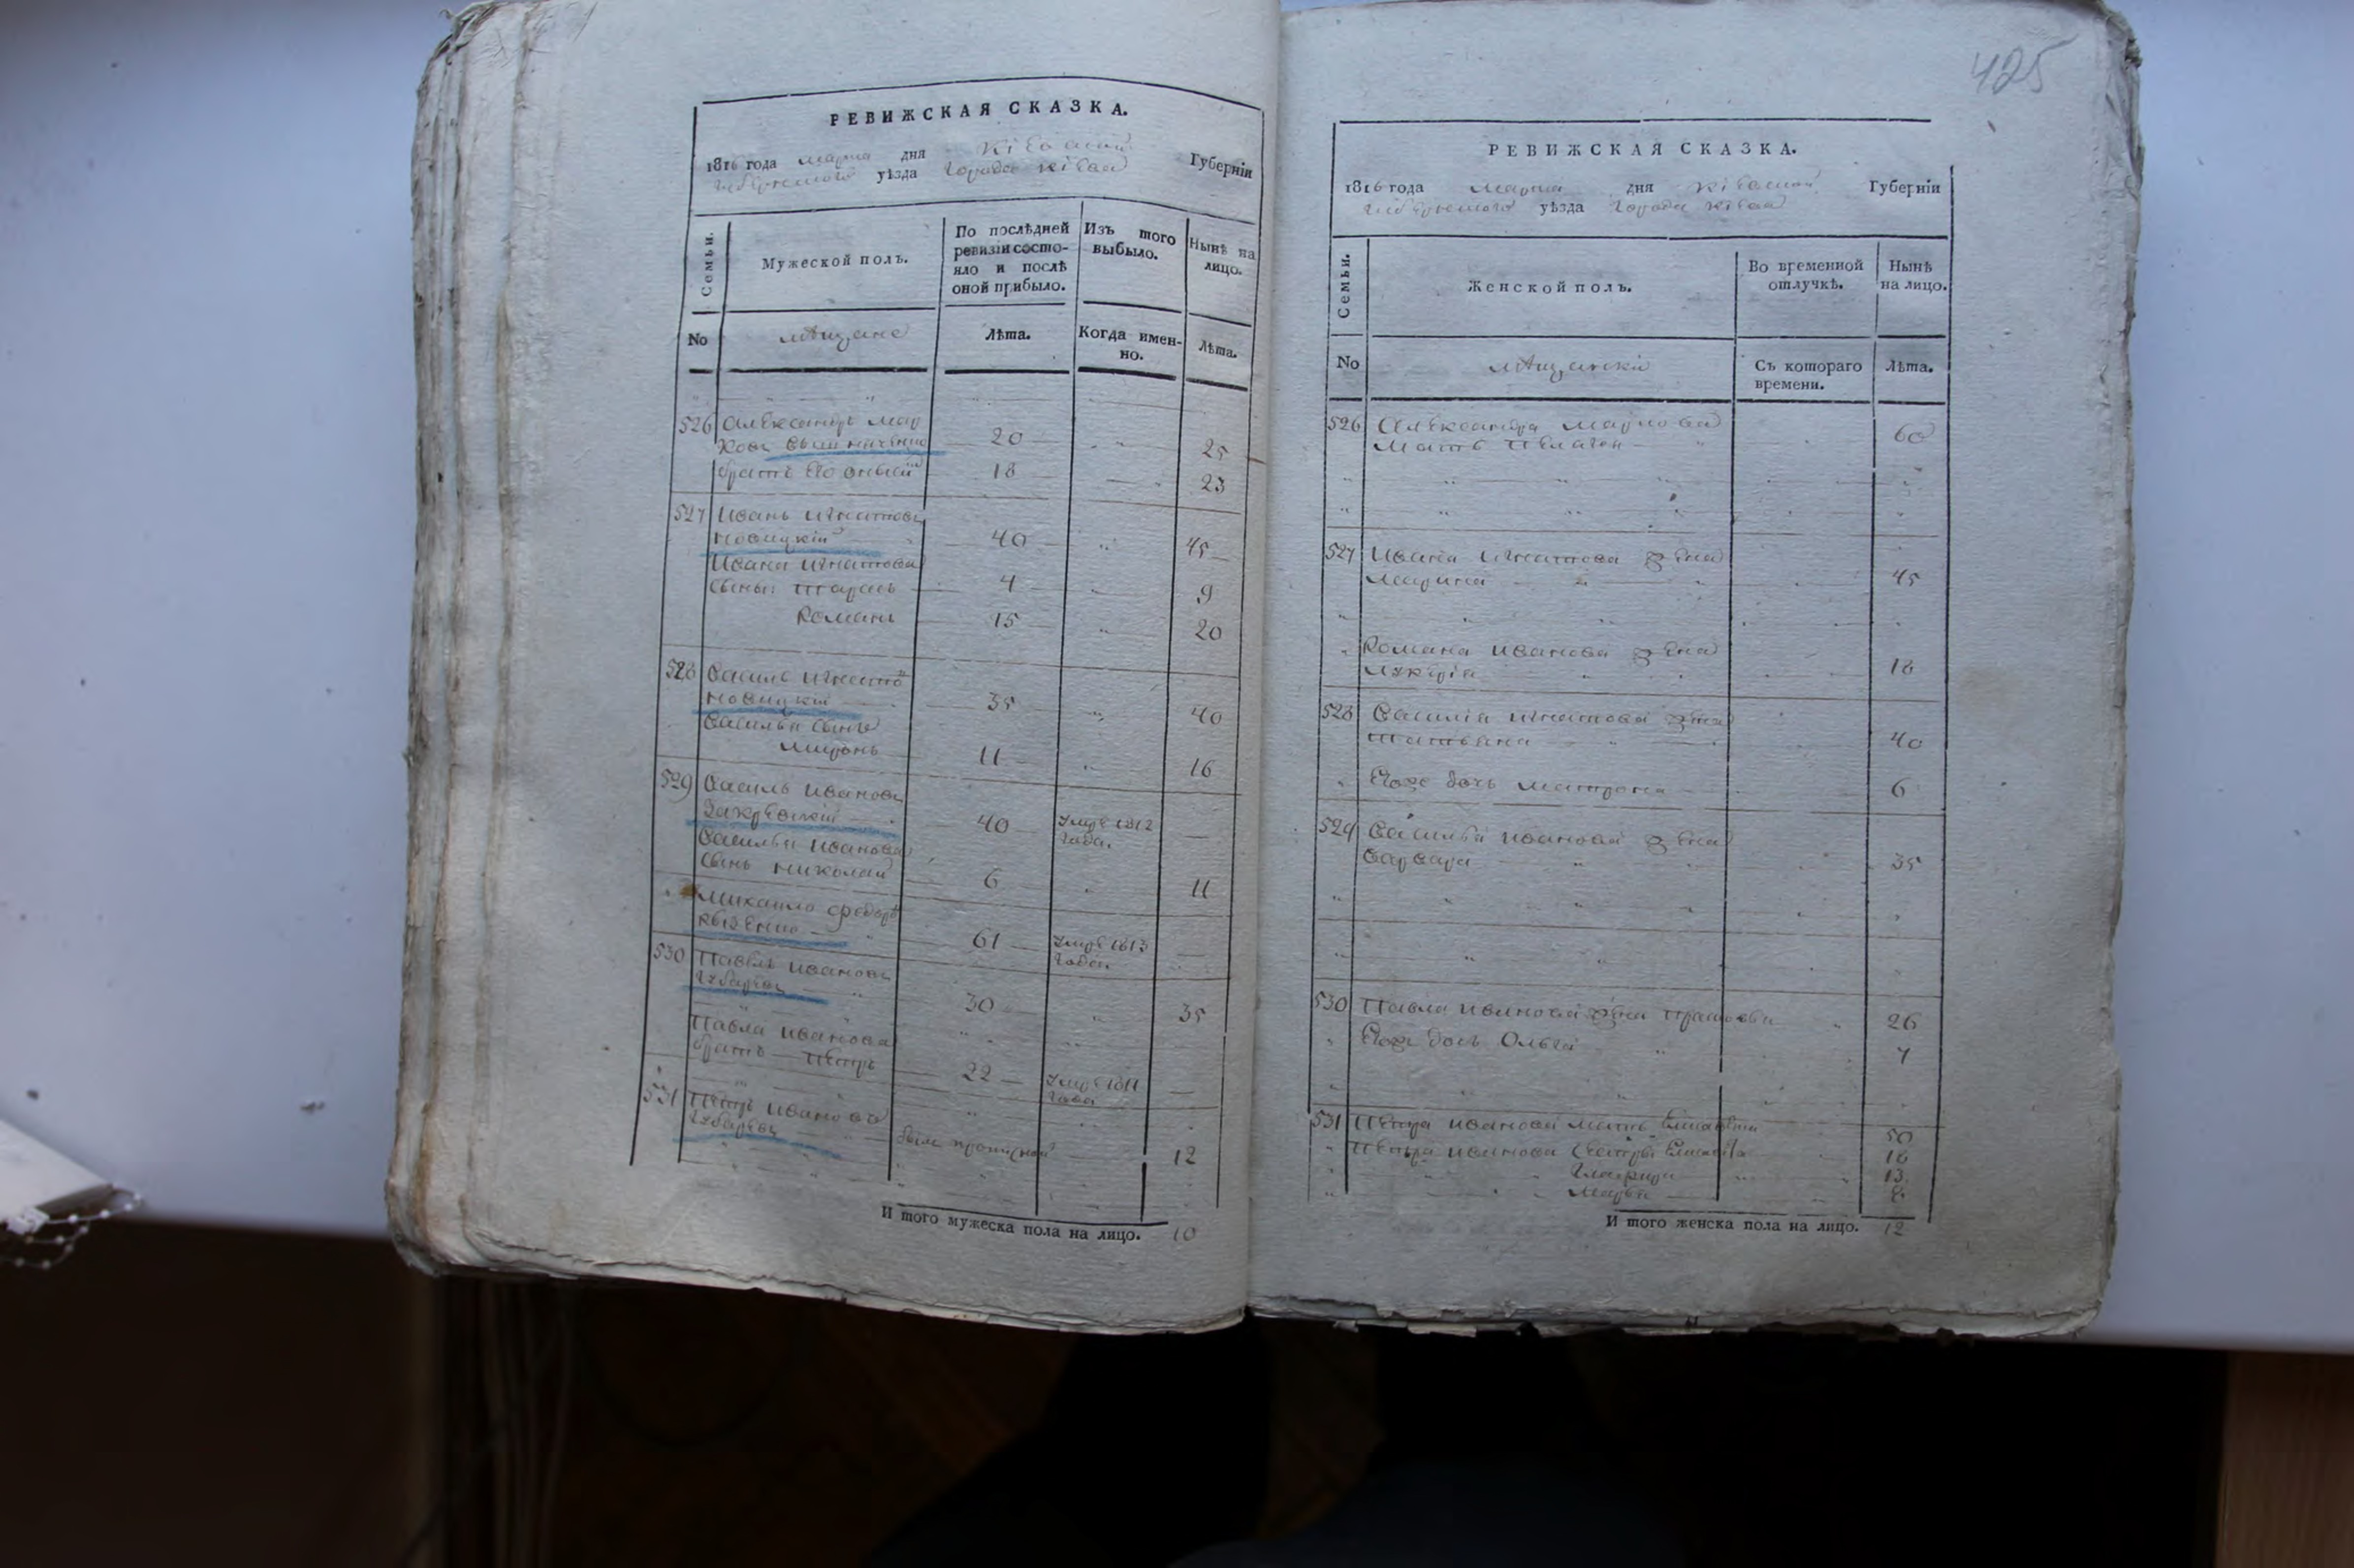 425
РЕВИЖСКАЯ СКАЗКА.
1816 года марта дня Кіевской Губерніи
уѣзда города Кіева
Семьи.
Мужеской полъ.
По послѣдней ревизіи состояло и послѣ оной прибыло.
Изъ того выбыло.
Нынѣ на лицо.
No
мѣщане
Лѣта.
Когда именно.
Лѣта.
526 Александръ Мар
ковъ 20 25
братъ его 18 23
527 Иванъ Игнатовъ
Новицкій 40 45
Ивана Игнатова
сыны: Тарасъ 4 9
Романъ 15 20
528 Василь Игнатов
Новицкій 35 40
Василья сынъ
Миронъ 11 16
529 Василь Ивановъ
Закревскій 40 умре 1812 года.
Василья Иванова
сынъ Николай 6 11
Михайло Федоров
61 умре 1813 года.
530 Павелъ Ивановъ
Губаревъ 30 35
Павла Иванова
братъ Петръ 22 умре 1811 года
531 Петръ Ивановъ
Губаревъ былъ прописной 12
И того мужеска пола на лицо. 10
РЕВИЖСКАЯ СКАЗКА.
1816 года марта дня Кіевской Губерніи
уѣзда города Кіева
Семьи.
Женской полъ.
Во временной отлучкѣ.
Нынѣ на лицо.
No
мѣщанки
Съ котораго времени.
Лѣта.
526 Александра Маркова
мать 60
527 Ивана Игнатова жена
Марина 45
Романа Иванова жена
18
528 Василія Игнатова жена
Татьяна 40
Егоже дочь Матрона 6
529 Василья Иванова жена
Варвара 35
530 Павла Иванова жена 26
Егоже дочь Ольга 7
531 Петра Иванова мать 50
Петра Иванова сестры 18
13
Марья 8
И того женска пола на лицо. 12